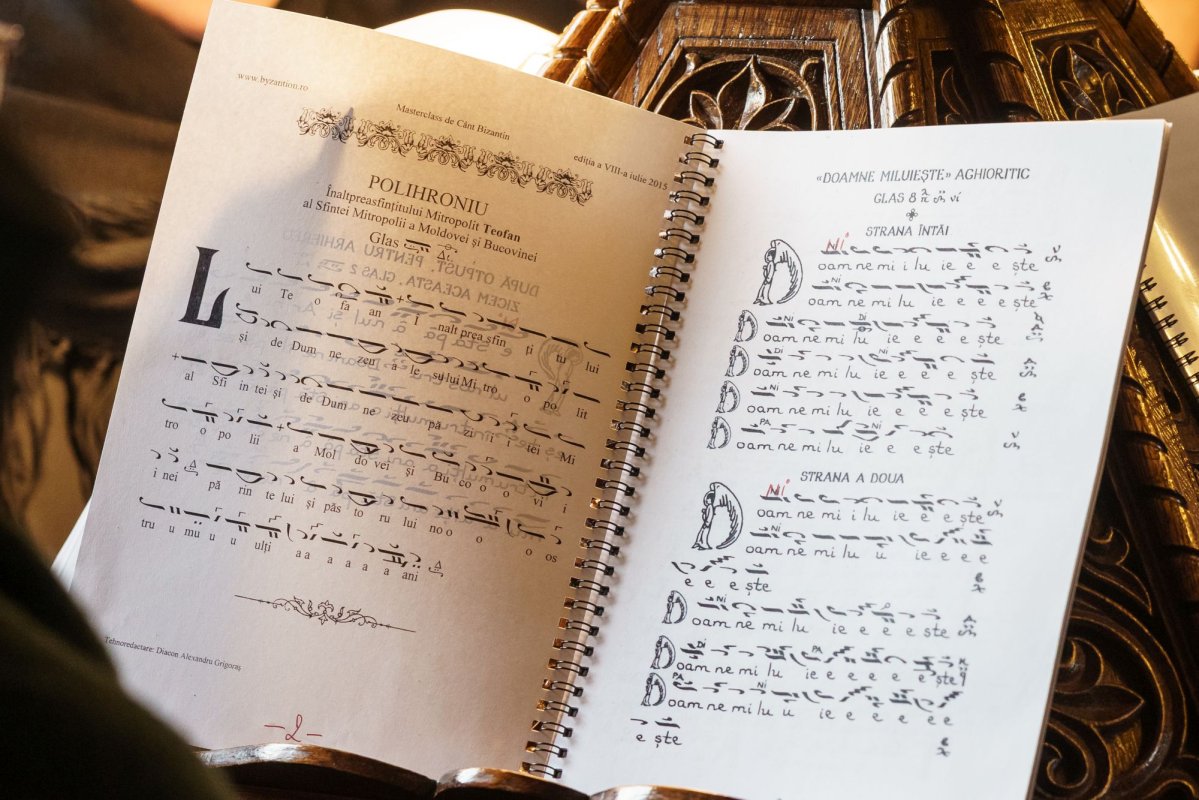 www.byzantion.ro
Masterclass de Cânt Bizantin
ediția a VIII-a iulie 2015
POLIHRONIU
Înaltpreasfințitului Mitropolit Teofan
al Sfintei Mitropolii a Moldovei și Bucovinei
Glas
L ui Te o fa an I nalt prea sfin ți tu lui
și de Dum ne zeu a le su lui Mi tro o po lit
al Sfi in tei și de Dum ne zeu pă zi tei Mi
tro o po lii a Mol do vei și Bu co o o vi i
i nei pă rin te lui și păs to ru lui no o o o os
tru u mu u u ulți a a a a a ani
Tehnoredactare: Diacon Alexandru Grigoraș
-2-
«DOAMNE MILUIEȘTE» AGHIORITIC
GLAS 8
STRANA ÎNTÂI
Doam ne mi i lu ie e e ște
Doam ne mi lu ie e e e ște
Doam ne mi lu ie e e ște
Doam ne mi lu ie e e ște
Doam ne mi lu ie e e ște
Doam ne mi lu ie e e ște
STRANA A DOUA
Doam ne mi i lu ie e e ște
Doam ne mi lu u ie e e e
e e e ște
Doam ne mi lu ie e e e ște
Doam ne mi lu ie e e e e ște
Doam ne mi lu u ie e e e e e
e ște